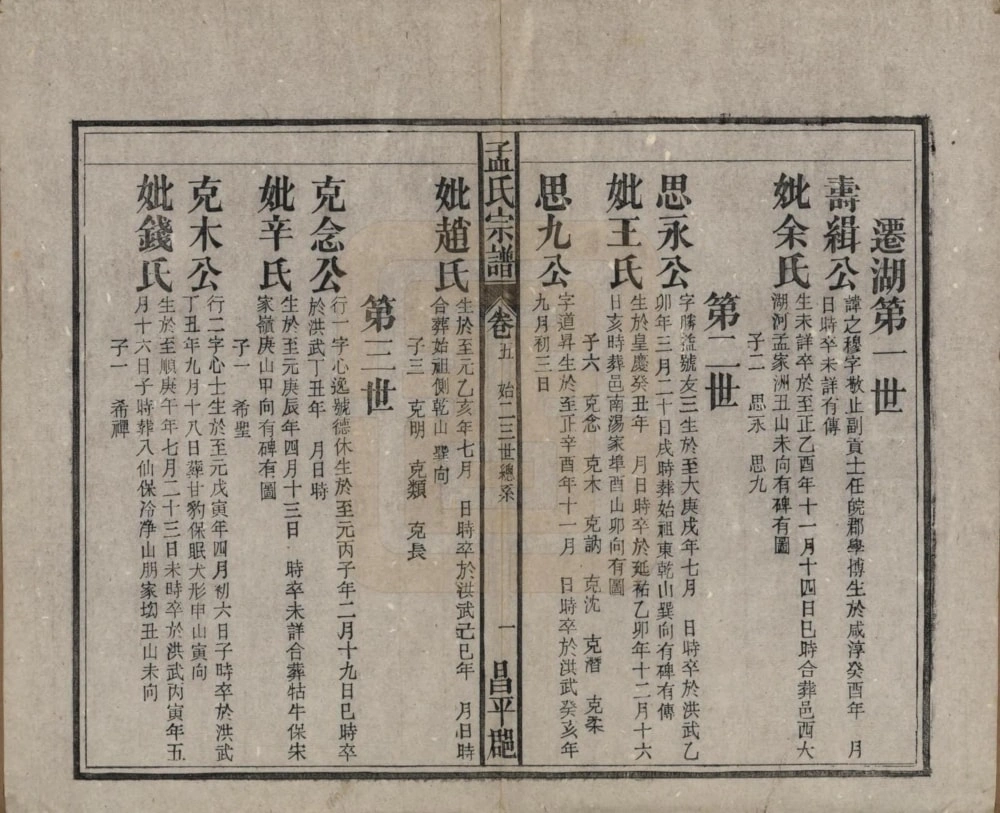 遷湖第一世
壽緝公
諱之穆字敬止副貢士任皖郡學博生於咸淳癸酉年　月
日時卒未詳有傳
妣余氏
生未詳卒於至正乙酉年十一月十四日巳時合葬邑西大
湖河孟家洲丑山未向有碑有圖
子二　思永　思九
第二世
思永公
字勝溢號友三生於至大庚戌年七月　日時卒於洪武乙
卯年三月二十日戌時葬始祖東乾山巽向有碑有傳
妣王氏
生於皇慶癸丑年　月日時卒於延祐乙卯年十二月十六
日亥時葬邑南湯家埠酉山卯向有圖
子六　克念　克木　克訥　克沈　克潛　克柔
思九公
字道昇生於至正辛酉年十一月　日時卒於洪武癸亥年
九月初三日
孟氏宗譜
卷五　始二三世總系
一
昌平郡
妣趙氏
生於至元乙亥年七月　日時卒於洪武己巳年　月日時
合葬始祖側乾山巽向
子三　克明　克類　克長
第三世
克念公
行一字心逸號德休生於至元丙子年二月十九日巳時卒
於洪武丁丑年　月日時
妣辛氏
生於至元庚辰年四月十三日　時卒未詳合葬牯牛保宋
家嶺庚山甲向有碑有圖
子一　希聖
克木公
行二字心士生於至元戊寅年四月初六日子時卒於洪武
丁丑年九月十八日葬甘豹保眠犬形申山寅向
妣錢氏
生於至順庚午年七月二十三日未時卒於洪武丙寅年五
月十六日子時葬八仙保冷净山朋家㘭丑山未向
子一　希禪